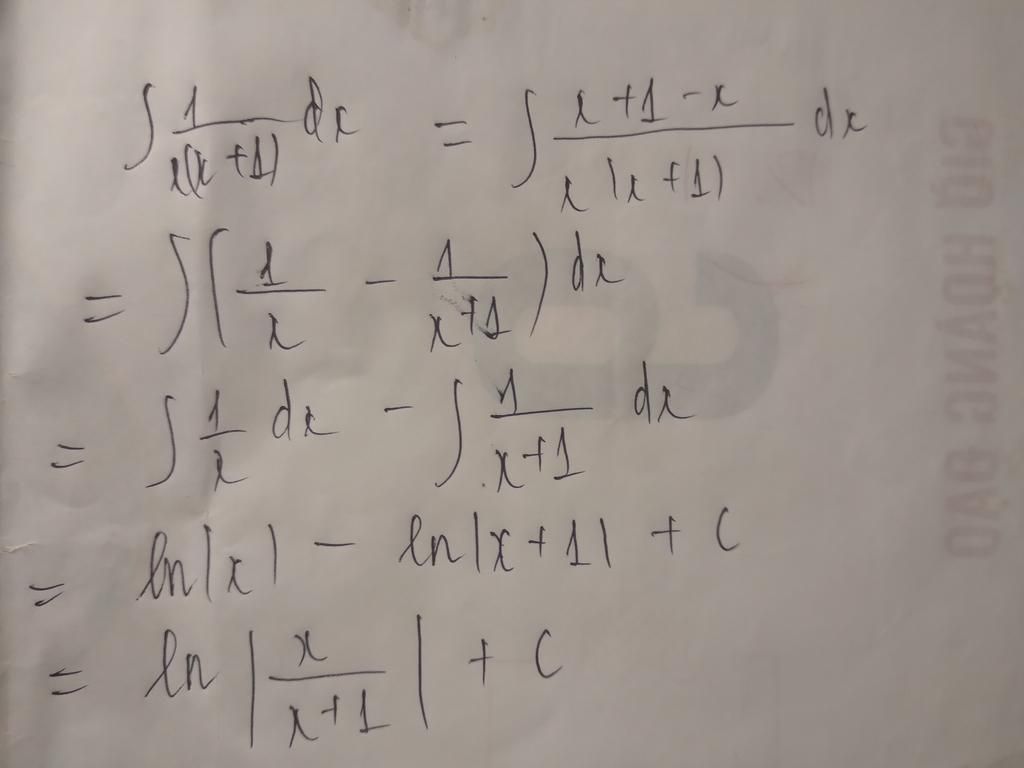 ∫ 1/(x(x+1)) dx = ∫ (x+1-x)/(x(x+1)) dx
= ∫ (1/x - 1/(x+1)) dx
= ∫ 1/x dx - ∫ 1/(x+1) dx
= ln|x| - ln|x+1| + C
= ln |x/(x+1)| + C